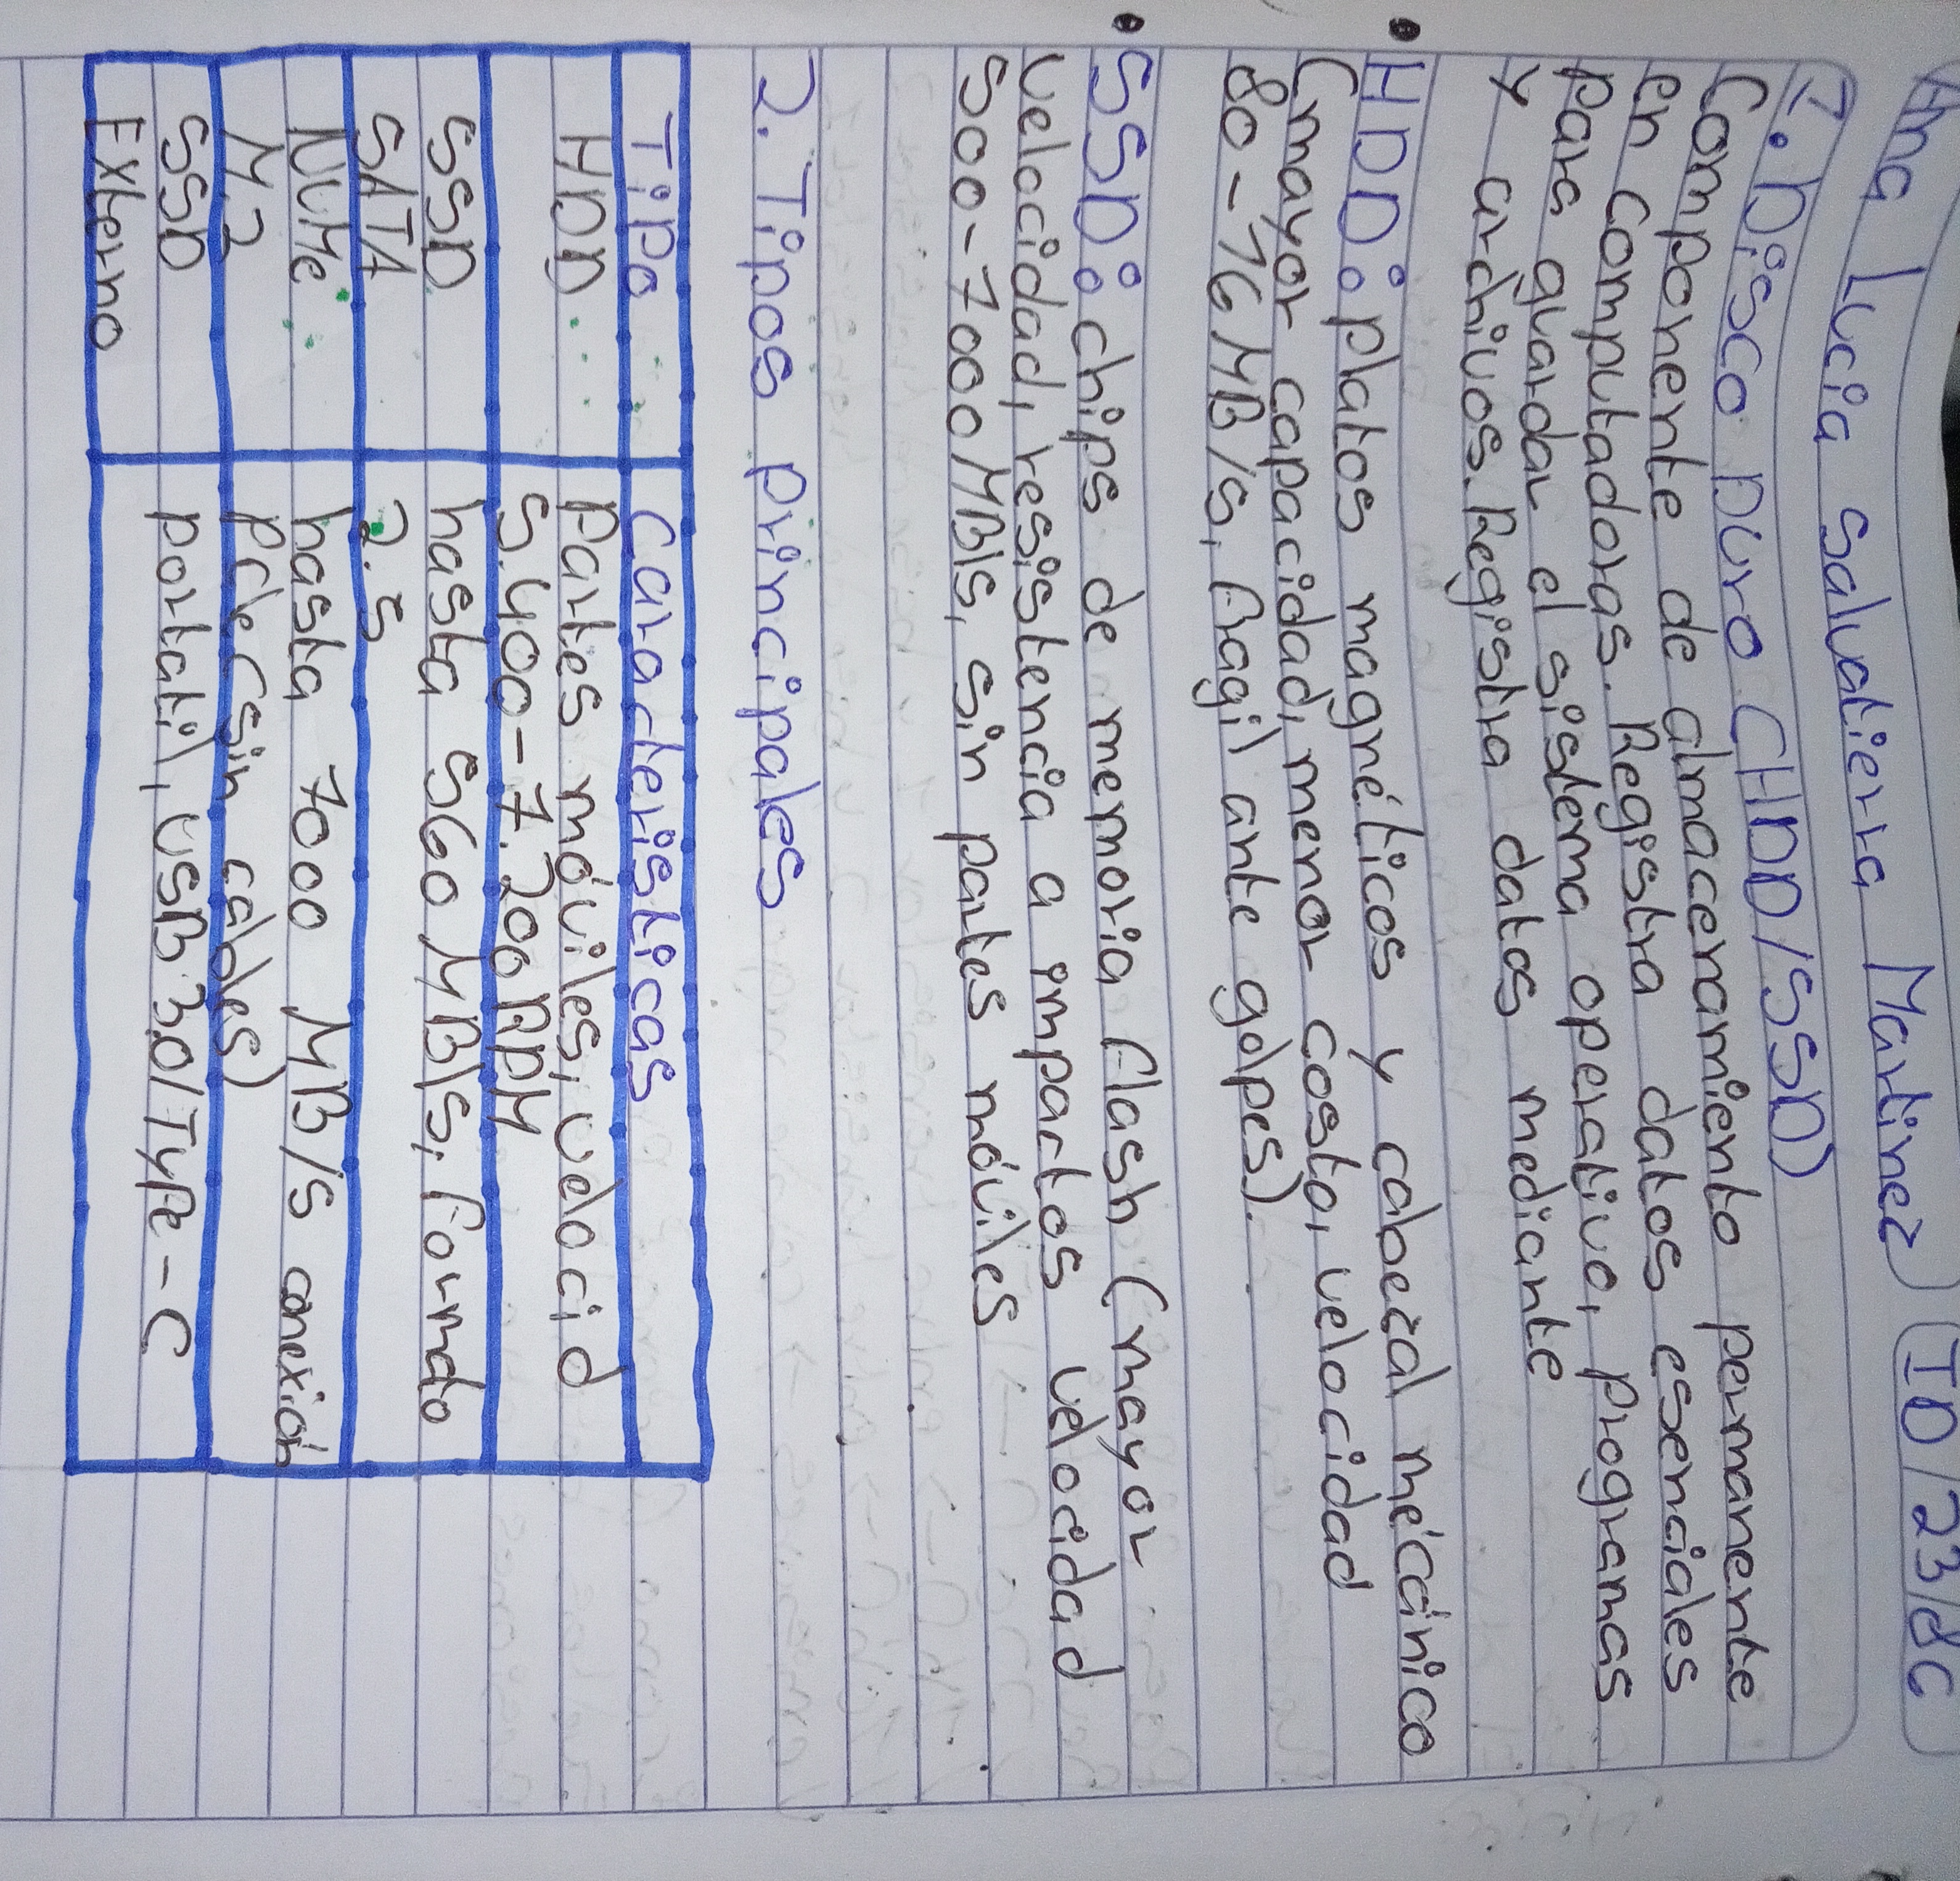 Ana Lucia Salvatierra Martinez
ID/23/86
1. Disco Duro (HDD/SSD)
Componente de almacenamiento permanente
en computadoras. Registra datos esenciales
para guardar el sistema operativo, programas
y archivos. Registra datos mediante
• HDD: platos magnéticos y cabezal mécánico
(mayor capacidad, menor costo, velocidad
80-16 MB/s, fragil ante golpes).
• SSD: chips de memoria flash (mayor
velocidad, resistencia a impactos velocidad
500-7000 MB/s, sin partes móviles
2. Tipos principales
Tipo Caracteristicas
HDD Partes móviles, velocid
5.400-7.200 RPM
SSD hasta 560 MB/s, formdo
SATA 2.5
NVMe hasta 7000 MB/s conexión
M.2 PCIe (sin cables)
SSD portatil, USB 3.0/Type-C
Externo